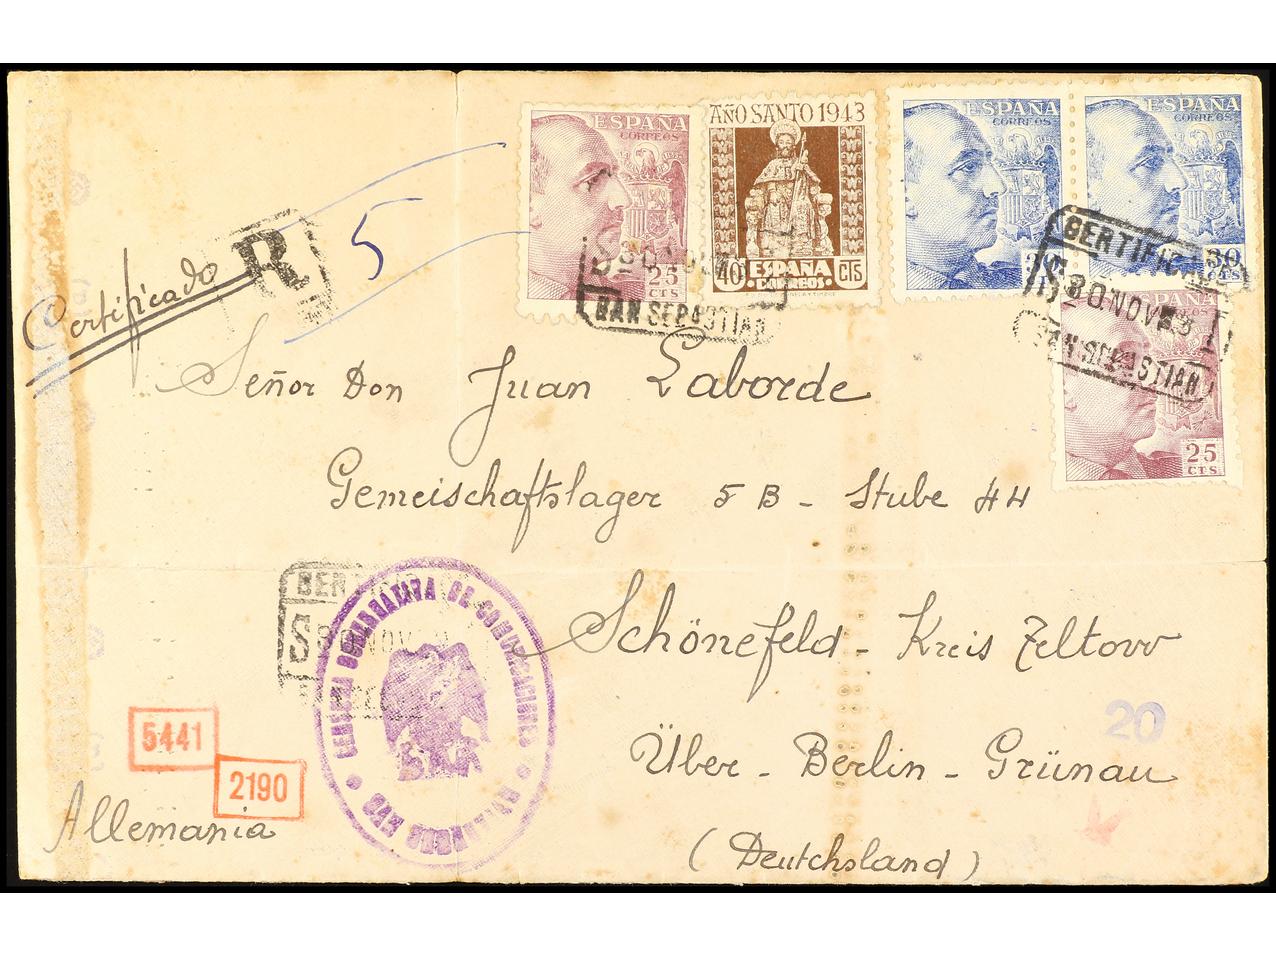 ESPAÑA
CORREOS
25
CTS
AÑO SANTO 1943
40 ESPAÑA CTS
CORREOS
ESPAÑA
CORREOS
ESPAÑA
CORREOS
30
CTS
ESPAÑA
25
CTS
Certificado
R
5
SAN SEBASTIAN
CERTIFICADO
30 NOV 43
SAN SEBASTIAN
Señor Don Juan Laborde
Gemeischaftslager 5 B - Stube 44
Schönefeld - Kreis Zeltow
20
Über - Berlin - Grünau
(Deutchsland)
CERTIFICADO
30 NOV
CENSURA GUBERNATIVA DE COMUNICACIONES
5441
2190
Allemania